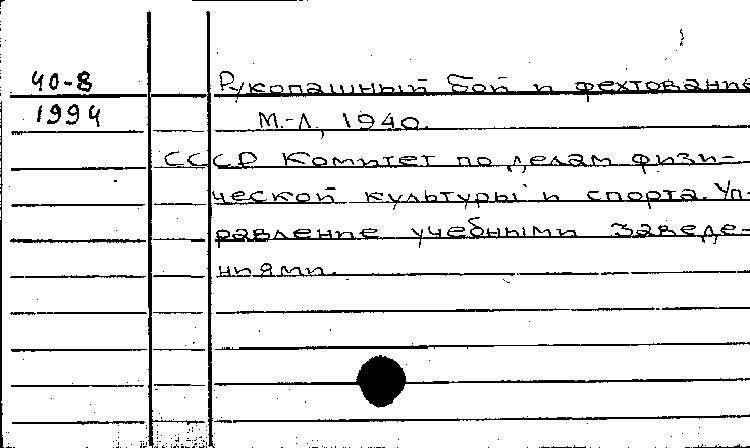 40-8 Рукопашный бой и фехтование
1994 М.-Л., 1940.
СССР Комитет по делам физи-
ческой культуры и спорта. Уп-
равление учебными заведе-
ниями.